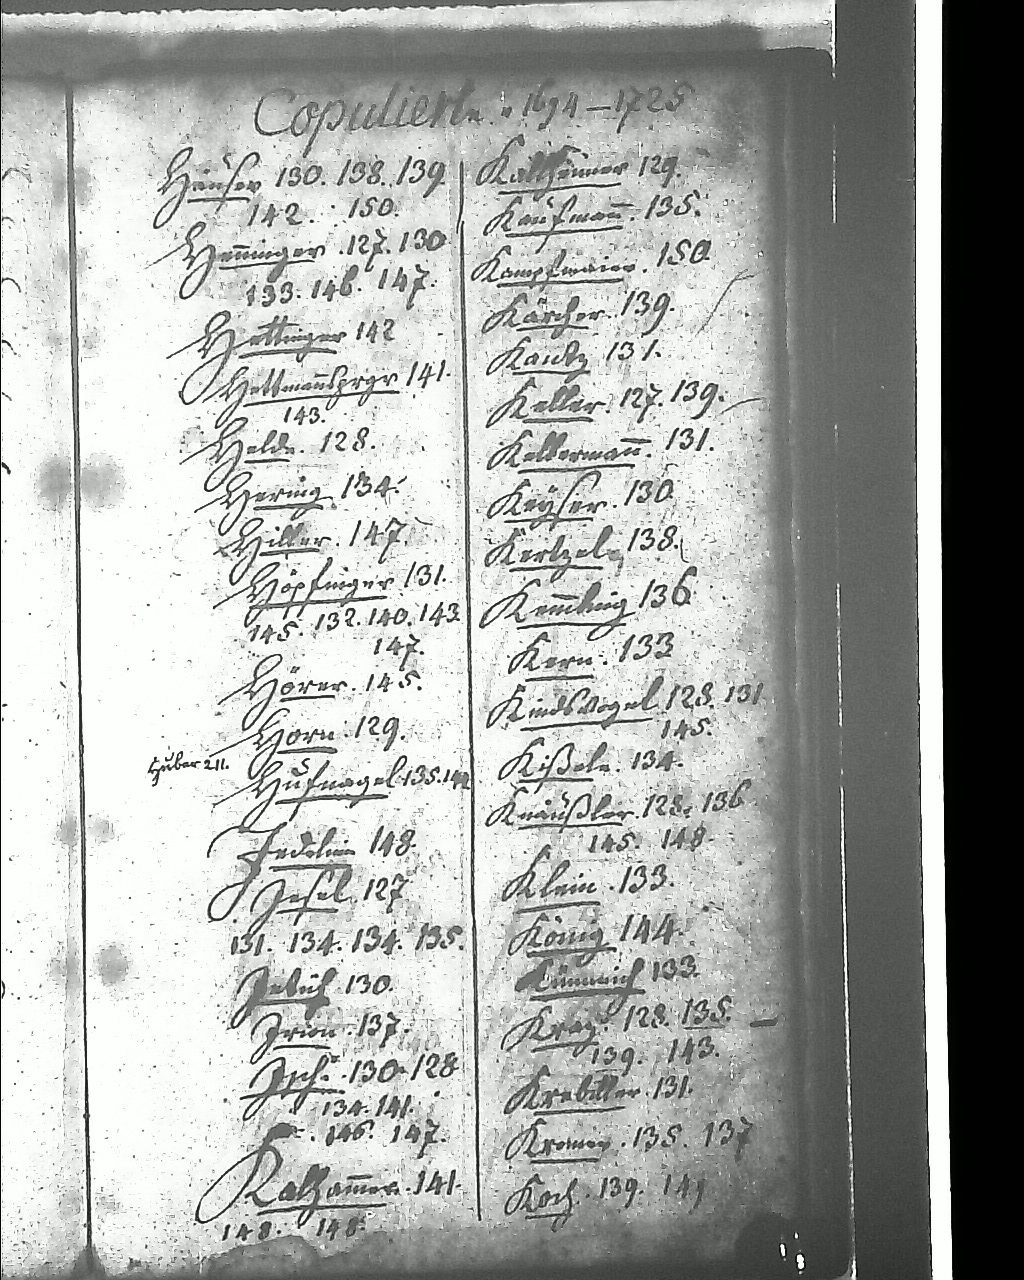 Copulierte 1694–1725
Häuser 130. 138. 139.
142. 150.
Henninger. 127. 130
133. 146. 147.
Hettinger 142
Hettmansprgr 141.
143.
Helde. 128.
Hering. 134.
Hiller. 147
Höpfinger 131.
145. 132. 140. 143.
147.
Hörer. 145.
Horn. 129.
Huber 211.
Hufnagel. 135. 142
148.
Josel. 127
131. 134. 134. 135.
130.
Irion. 137.
130. 128
134. 141.
146. 147.
K
Kalhamer. 141.
148. 148.
129.
Kaufmann. 135.
Kampfmaier. 150.
Kärcher. 139.
Kautz 131.
Keller. 127. 139.
Kellermann. 131.
Keÿser. 130
Kertzel 138.
Kemling 136
Kern. 133
Kindsvogel 128. 131
145.
Kißele. 134.
Knäußler. 128. 136
145. 148.
Klein. 133.
König 144.
Kümmich 133.
Kreg. 128. 135.
139. 143.
Krebiller. 131.
Kramer. 135. 137
Koch. 139. 141